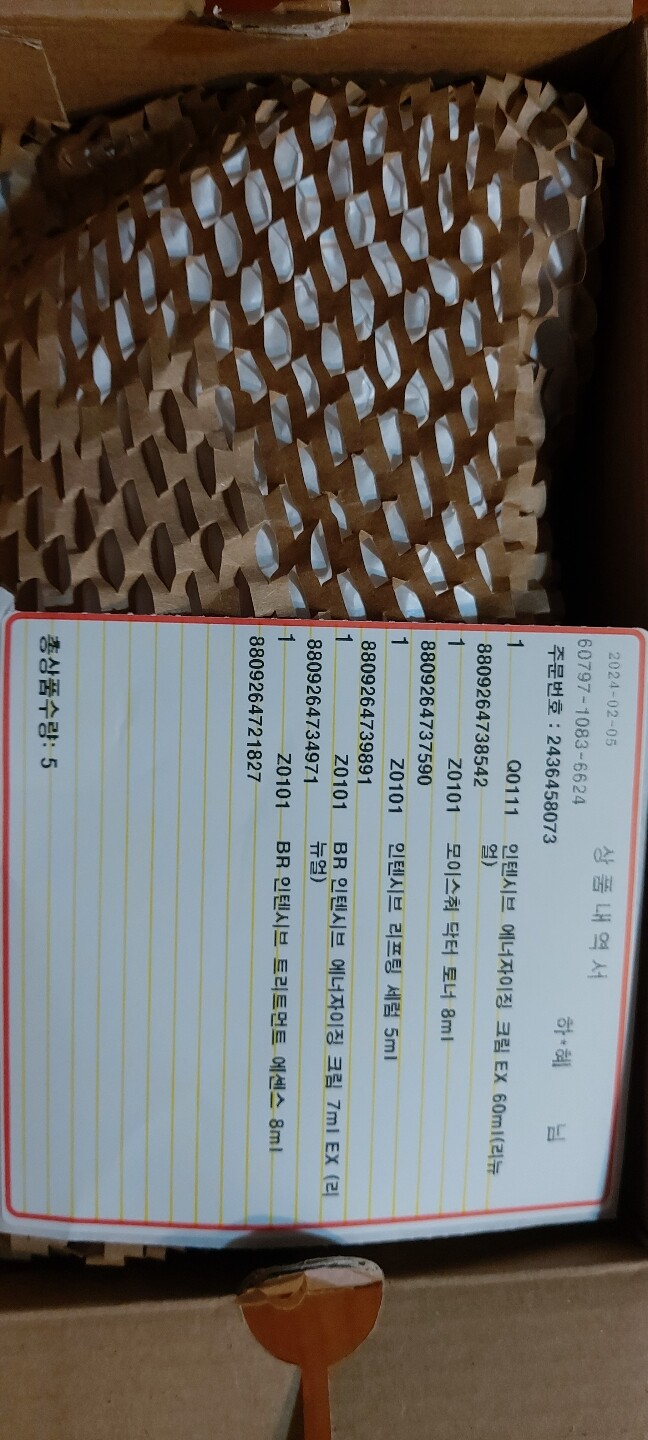 2024-02-05
상 품 내 역 서
60797-1083-6624
하*혜 님
주문번호 : 2436458073
1 Q0111 인텐시브 에너자이징 크림 EX 60ml(리뉴
얼)
8809264738542
1 Z0101 모이스춰 닥터 토너 8ml
8809264737590
1 Z0101 인텐시브 리프팅 세럼 5ml
8809264739891
1 Z0101 BR 인텐시브 에너자이징 크림 7ml EX (리
뉴얼)
8809264734971
1 Z0101 BR 인텐시브 트리트먼트 에센스 8ml
8809264721827
총상품수량: 5